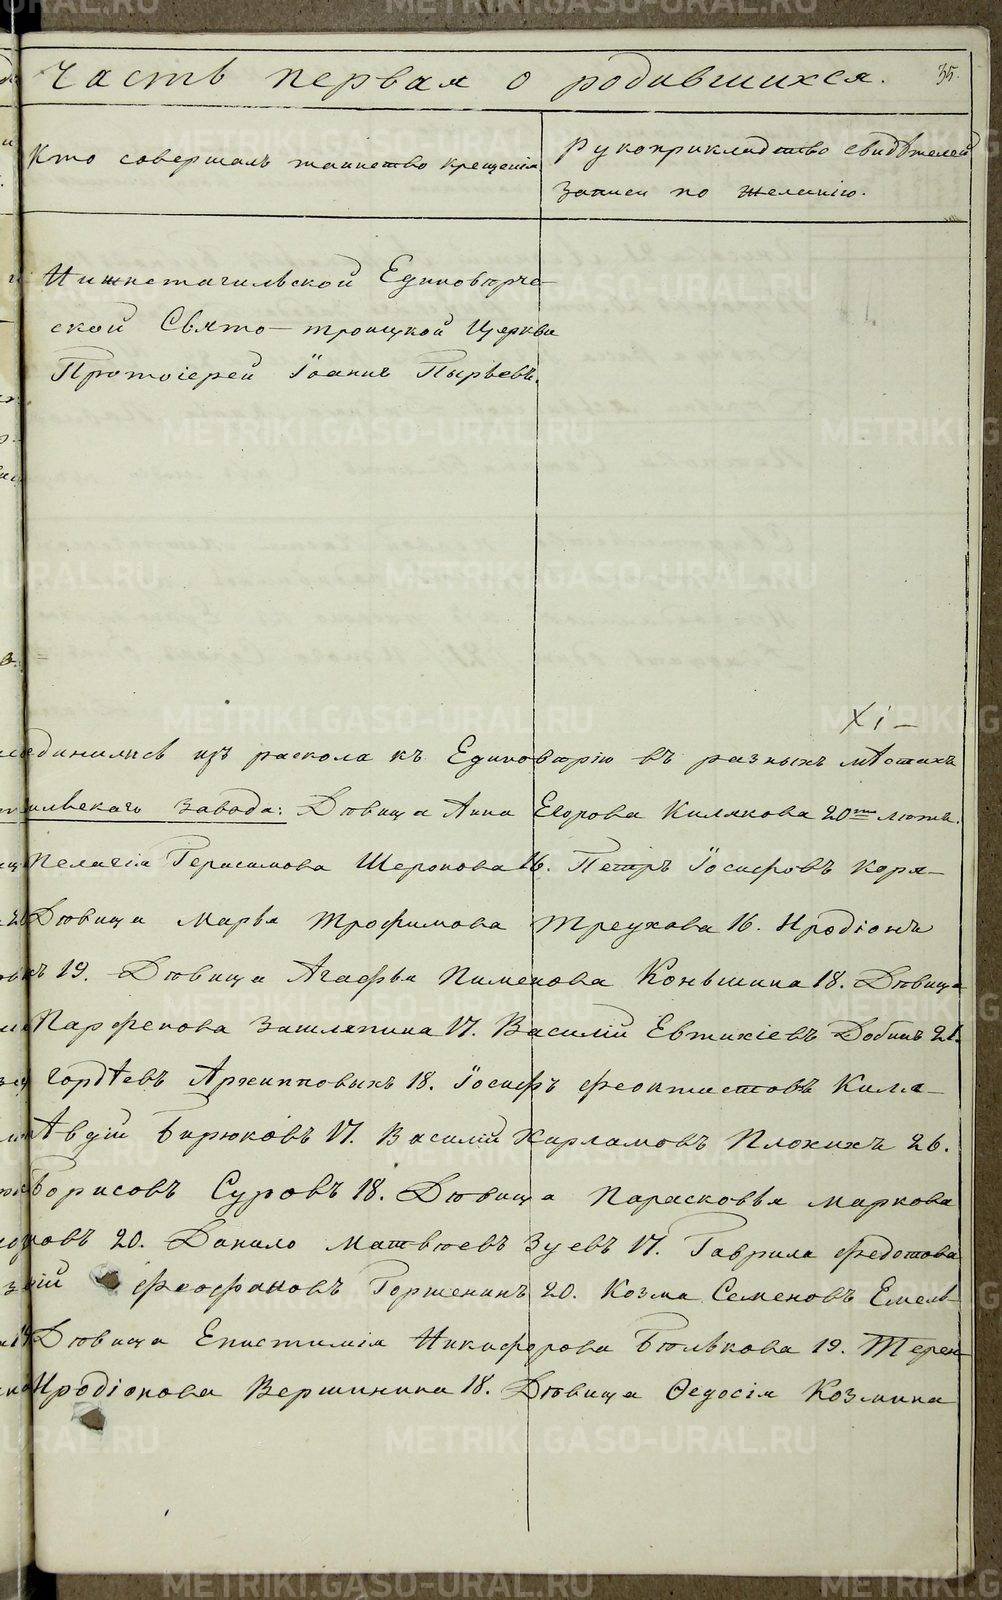 Часть первая о родившихся. 35.
Кто совершалъ таинство крещенія
Рукоприкладство свидѣтелей
записи по желанію.
Нижнетагильской Единовѣрче-
ской Свято-троицкой Церкви
Протоіерей Іоаннъ Пырьевъ.
XI-
единились изъ раскола къ Единовѣрію въ разныхъ мѣстахъ
ильскаго завода: Дѣвица Анна Егорова Килякова 20ти лѣтъ.
Пелагія Герасимова Шеронова 16. Петръ Іосифовъ Коря-
Дѣвица Марѳа Трофимова Треухова 16. Иродіонъ
19. Дѣвица Агафья Пименова Коньшина 18. Дѣвица
Парфенова Зашляпина 17. Василій Евтихіевъ Добинъ 21.
Гордѣевъ Архипповыхъ 18. Іосифъ Феоктистовъ Киля-
Авдій Бирюковъ 17. Василій Харламовъ Плохихъ 26.
Борисовъ Суровъ 18. Дѣвица Парасковья Маркова
новъ 20. Данило Матвѣевъ Зуевъ 17. Гаврила Федотова
Феофановъ Горшенинъ 20. Козма Семеновъ Емель
Дѣвица Епистимія Никифорова Бѣлькова 19. Терен
Иродіонова Вершинина 18. Дѣвица Ѳедосія Козмина
METRIKI.GASO-URAL.RU